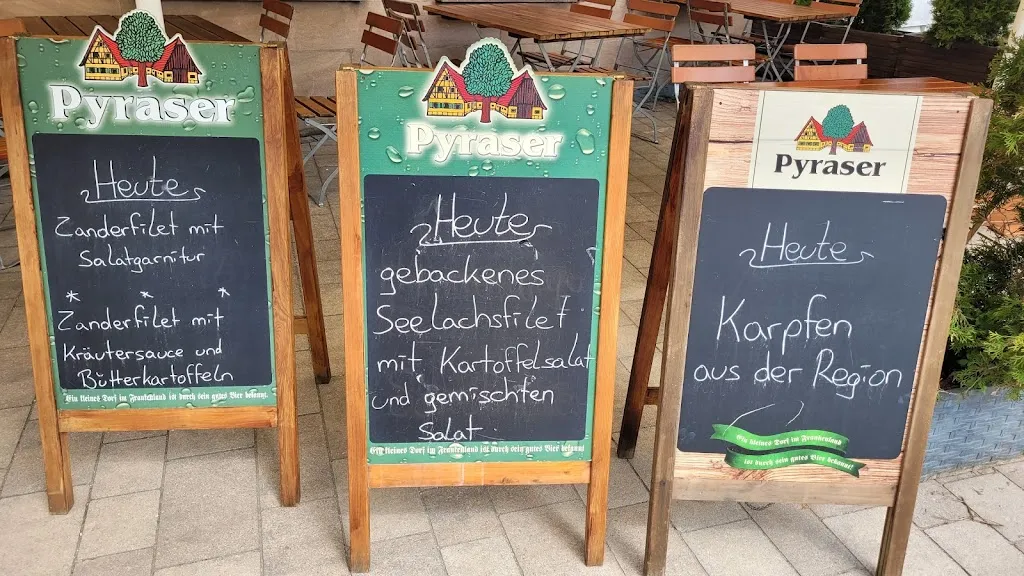 Pyraser
Heute
Zanderfilet mit
Salatgarnitur
* * *
Zanderfilet mit
Kräutersauce und
Butterkartoffeln
Ein kleines Dorf im Frankenland ist durch sein gutes Bier bekannt.
Pyraser
Heute
gebackenes
Seelachsfilet
mit Kartoffelsalat
und gemischten
Salat
Ein kleines Dorf im Frankenland ist durch sein gutes Bier bekannt
Pyraser
Heute
Karpfen
aus der Region
Ein kleines Dorf im Frankenland
ist durch sein gutes Bier bekannt!